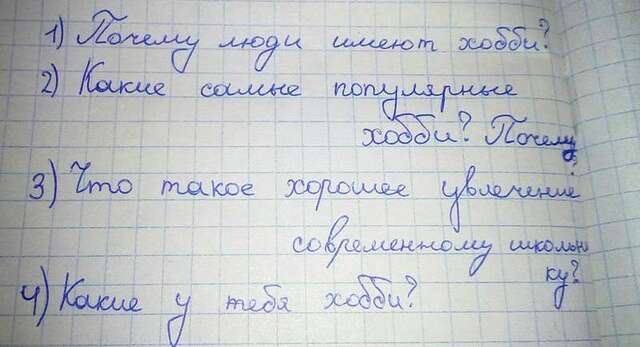 1) Почему люди имеют хобби?
2) Какие самые популярные
хобби? Почему?
3) Что такое хорошее увлечение
современному школьни
ку?
4) Какие у тебя хобби?